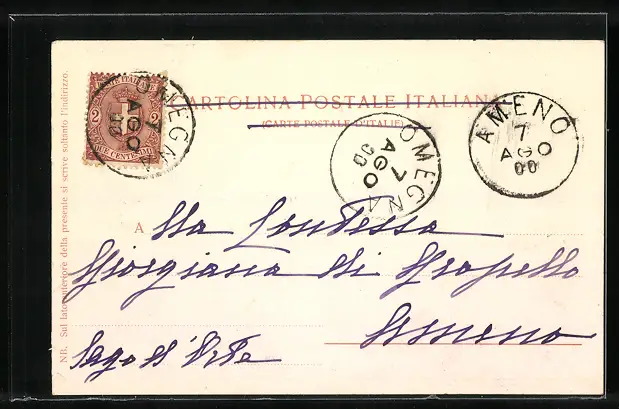 POSTE ITALIANE
2 2
DUE CENTESIMI
OMEGNA
7
AGO
00
CARTOLINA POSTALE ITALIANA
(CARTE POSTALE D'ITALIE)
OMEGNA
7
AGO
00
AMENO
7
AGO
00
A Alla Contessa
Giorgiana di Gropello
Ameno
Lago d'Orta
NB. Sul lato anteriore della presente si scrive soltanto l'indirizzo.